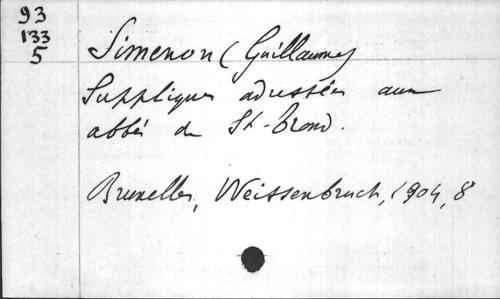 93
133
5
Simenon (Guillaume)
Suppliques adressées aux
abbés de St-Trond.
Bruxelles, Weissenbruch, 1904, 8